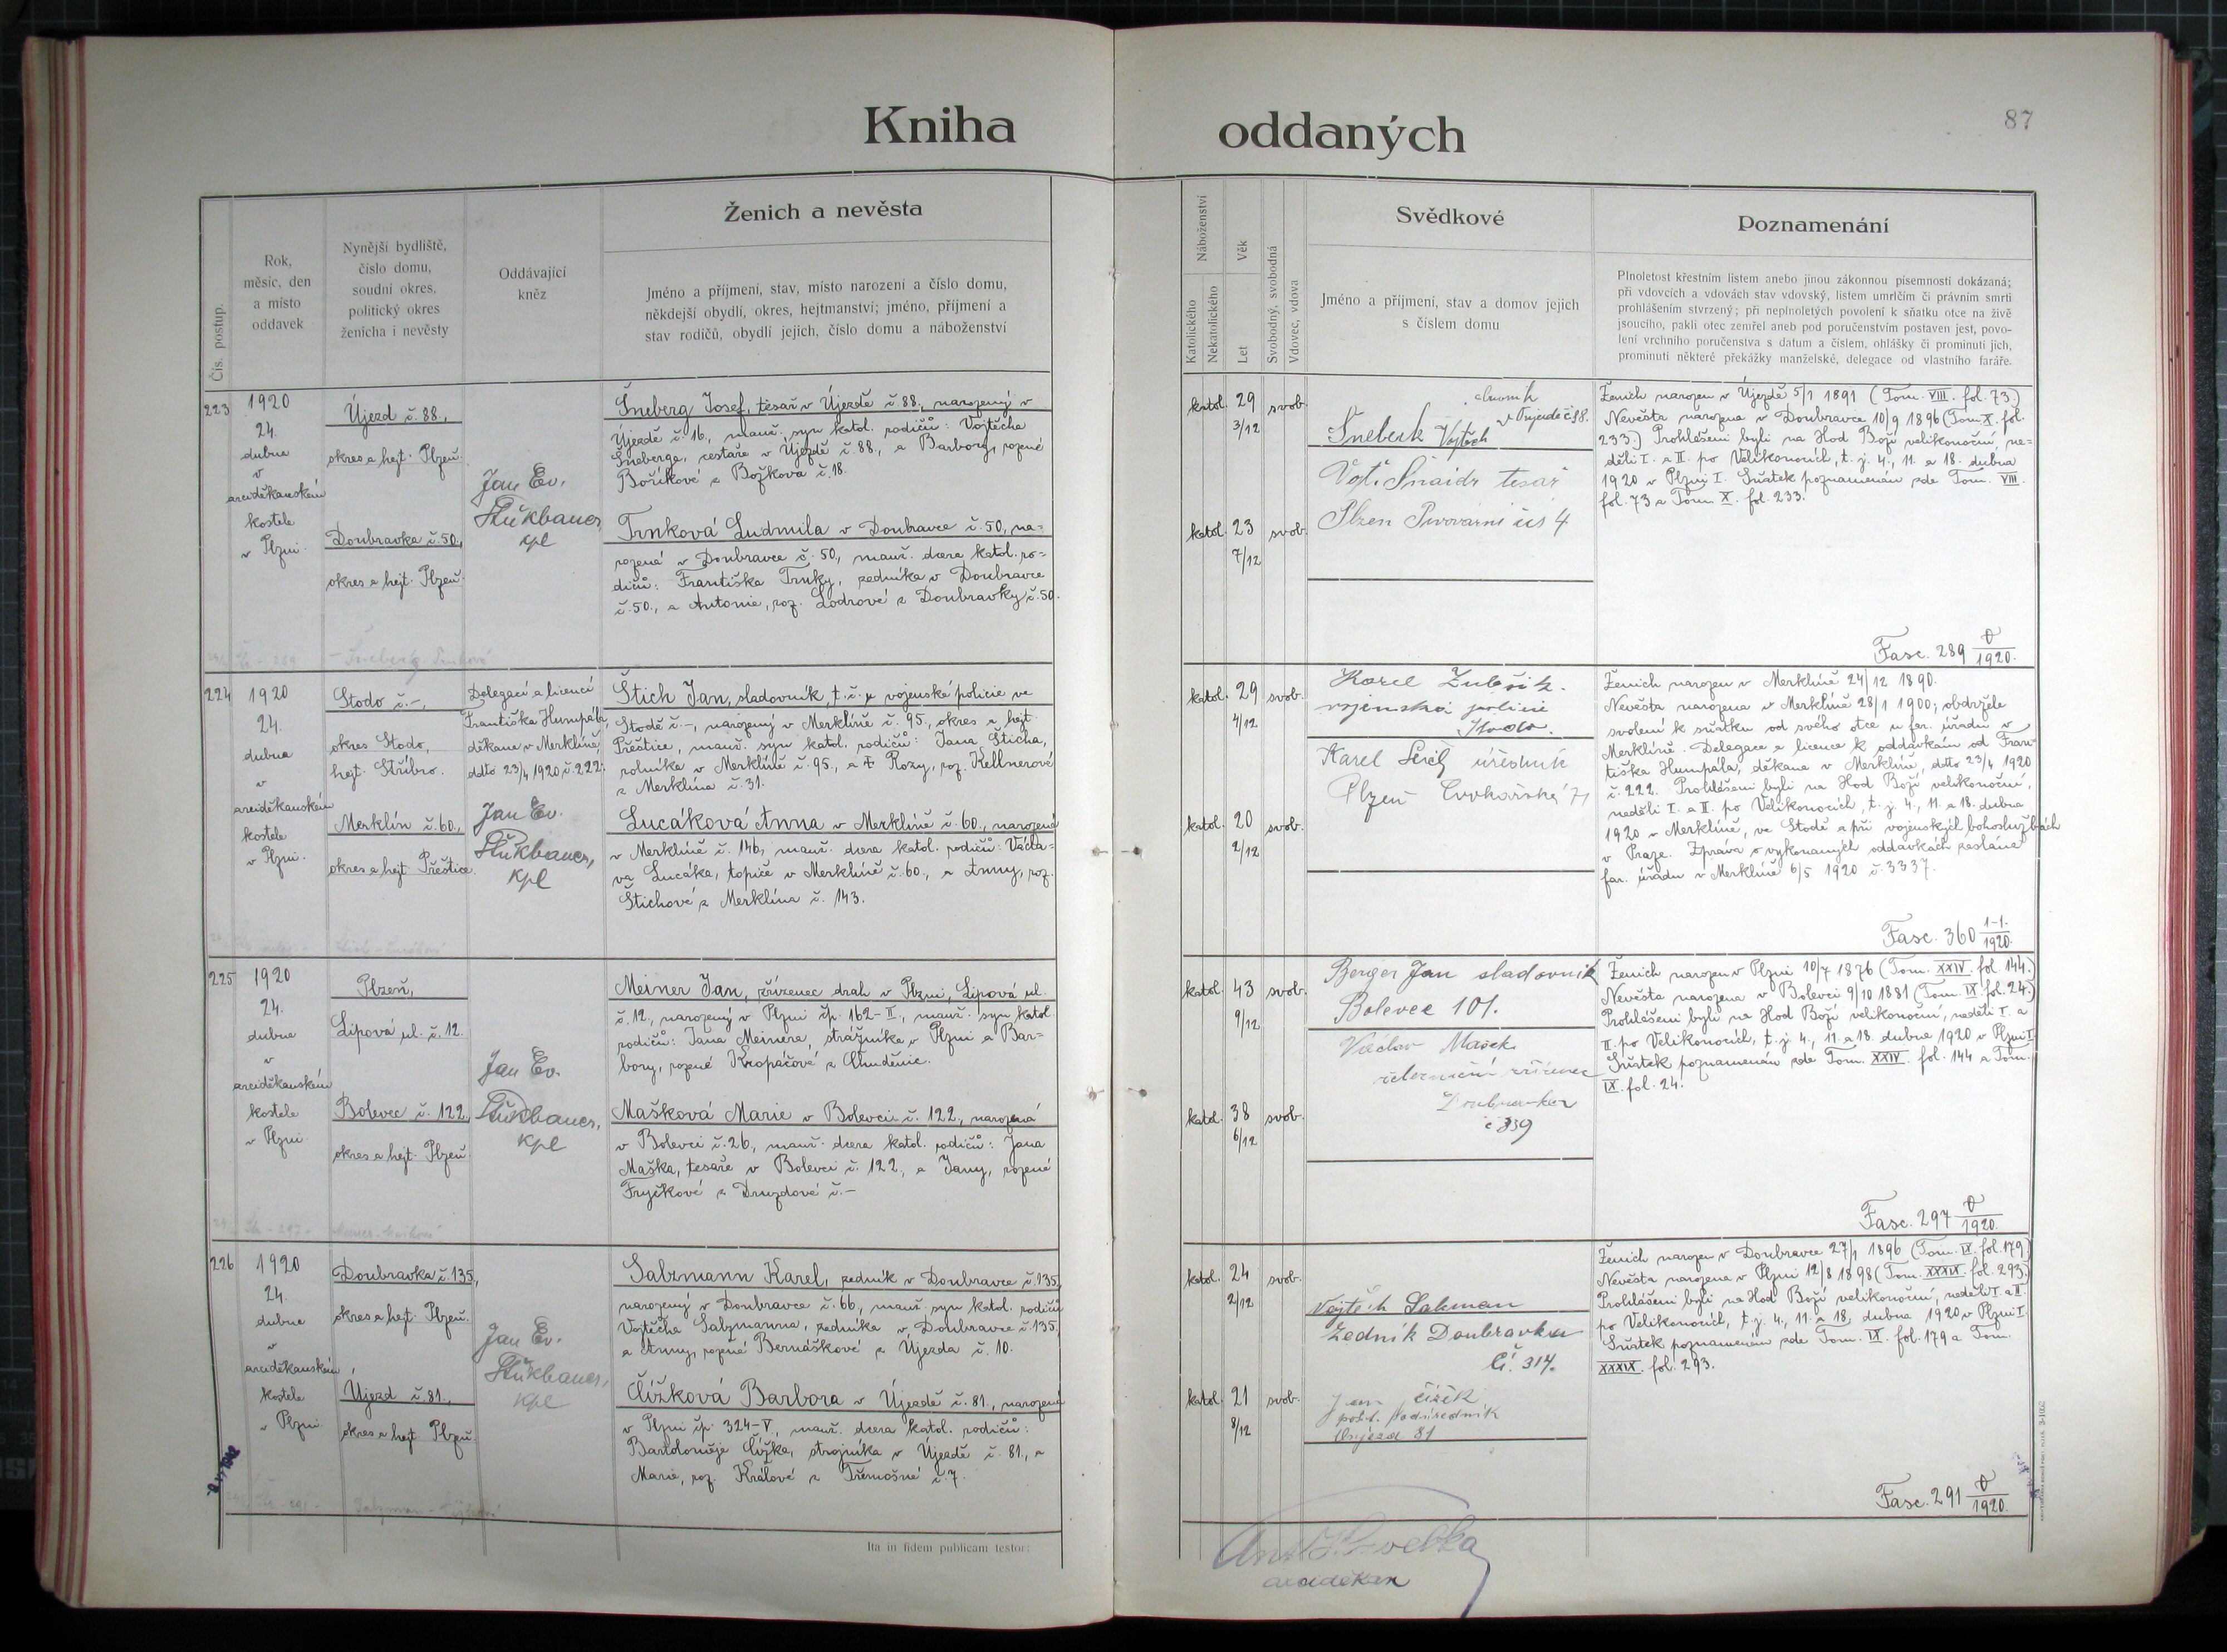 Kniha oddaných
87
Čís. postup.
Rok,
měsíc, den
a místo
oddavek
Nynější bydliště,
číslo domu,
soudní okres,
politický okres
ženicha i nevěsty
Oddávající
kněz
Ženich a nevěsta
Jméno a příjmení, stav, místo narození a číslo domu,
někdejší obydlí, okres, hejtmanství; jméno, příjmení a
stav rodičů, obydlí jejich, číslo domu a náboženství
Náboženství
Katolického
Nekatolického
Věk
Let
Svobodný, svobodná
Vdovec, vdova
Svědkové
Jméno a příjmení, stav a domov jejich
s číslem domu
Poznamenání
Plnoletost křestním listem anebo jinou zákonnou písemností dokázaná;
při vdovcích a vdovách stav vdovský, listem umrlčím či právním smrti
prohlášením stvrzený; při neplnoletých povolení k sňatku otce na živě
jsoucího, pakli otec zemřel aneb pod poručenstvím postaven jest, povo-
lení vrchního poručenstva s datum a číslem, ohlášky či prominutí jich,
prominutí některé překážky manželské, delegace od vlastního faráře.
223
1920
24.
dubna
v
arciděkanském
kostele
v Plzni.
Újezd č. 88.,
okres a hejt. Plzeň.
Doubravka č. 50.,
okres a hejt. Plzeň.
Jan Ev.
kpl
Šneberg Josef, tesař v Újezdě č. 88., narozený v
Újezdě č. 16., manž. syn katol. rodičů: Vojtěcha
Šneberga, cestáře v Újezdě č. 88., a Barbory, rozené
Boříkové z Božkova č. 18.
Trnková Ludmila v Doubravce č. 50., na-
rozená v Doubravce č. 50., manž. dcera katol. ro-
dičů: Františka Trnky, zedníka v Doubravce
č. 50., a Antonie, roz. Lodrové z Doubravky č. 50.
katol. 29 svob.
3/12
katol. 23 svob.
7/12
v Oujezdě č. 88.
Šneberk Vojtěch
Vojt. Šnaidr tesař
Plzen Pivovarní čís 4
Ženich narozen v Újezdě 5/1 1891 (Tom. VIII. fol. 73.)
Nevěsta narozena v Doubravce 10/9 1896 (Tom. X. fol.
233.) Prohlášeni byli na Hod Boží velikonoční, ne-
děli I. a II. po Velikonocích, t. j. 4., 11. a 18. dubna
1920 v Plzni I. Sňatek poznamenán zde Tom. VIII.
fol. 73 a Tom. X. fol. 233.
Fasc. 289 V/1920.
224
1920
24.
dubna
v
arciděkanském
kostele
v Plzni.
Stodo č. -,
okres Stodo,
hejt. Stříbro.
Merklín č. 60.,
okres a hejt. Přeštice.
Delegací a licencí
Františka Humpála,
děkana v Merklíně,
ddto 23/4 1920 č. 222.
Jan Ev.
kpl
Štich Jan, sladovník, t. č. u vojenské policie ve
Stodě č. -, narozený v Merklíně č. 95., okres a hejt.
Přeštice, manž. syn katol. rodičů: Jana Šticha,
rolníka v Merklíně č. 95., a ✝ Rozy, roz. Kellnerové
z Merklína č. 31.
Lucáková Anna v Merklíně č. 60., narozená
v Merklíně č. 146., manž. dcera katol. rodičů: Václa-
va Lucáka, topiče v Merklíně č. 60., a Anny, roz.
Štichové z Merklína č. 143.
katol. 29 svob.
4/12
katol. 20 svob.
2/12
Karel
vojenská policie
Stodo.
Karel úředník
Plzeň 71
Ženich narozen v Merklíně 24/12 1890.
Nevěsta narozena v Merklíně 28/1 1900; obdržela
svolení k sňatku od svého otce u far. úřadu v
Merklíně. Delegace a licence k oddavkám od Fran-
tiška Humpála, děkana v Merklíně, ddto 23/4 1920
č. 222. Prohlášeni byli na Hod Boží velikonoční,
neděli I. a II. po Velikonocích, t. j. 4., 11. a 18. dubna
1920 v Merklíně, ve Stodě a při vojenských bohoslužbách
v Praze. Zpráva o vykonaných oddavkách zaslána
far. úřadu v Merklíně 6/5 1920 č. 3337.
Fasc. 360 1-1./1920.
225
1920
24.
dubna
v
arciděkanském
kostele
v Plzni.
Plzeň,
Lipová ul. č. 12.
Bolevec č. 122,
okres a hejt. Plzeň.
Jan Ev.
kpl
Meiner Jan, zřízenec drah v Plzni, Lipová ul.
č. 12., narozený v Plzni čp. 162-II., manž. syn katol.
rodičů: Jana Meinera, strážníka v Plzni a Bar-
bory, rozené Kropáčové z Chuděnic.
Mašková Marie v Bolevci č. 122., narozená
v Bolevci č. 26., manž. dcera katol. rodičů: Jana
Maška, tesaře v Bolevci č. 122., a Jany, rozené
Fryčkové z Druzdové č. -
katol. 43 svob.
9/12
katol. 38 svob.
6/12
Berger Jan sladovník
Bolevec 101.
Václav Mašek
železniční zřízenec
Doubravka
č 339
Ženich narozen v Plzni 10/7 1876 (Tom. XXIV. fol. 144.)
Nevěsta narozena v Bolevci 9/10 1881 (Tom. IX. fol. 24.)
Prohlášeni byli na Hod Boží velikonoční, neděli I. a
II. po Velikonocích, t. j. 4., 11. a 18. dubna 1920 v Plzni I.
Sňatek poznamenán zde Tom. XXIV. fol. 144 a Tom.
IX. fol. 24.
Fasc. 297 V/1920.
226
1920
24.
dubna
v
arciděkanském
kostele
v Plzni
Doubravka č. 135.,
okres a hejt. Plzeň.
Újezd č. 81.,
okres a hejt Plzeň.
Jan Ev.
kpl
Salzmann Karel, zedník v Doubravce č. 135.
narozený v Doubravce č. 66., manž. syn katol. rodičů
Vojtěcha Salzmanna, zedníka v Doubravce č. 135.
a Anny, rozené Bernáškové z Újezda č. 10.
Čížková Barbora v Újezdě č. 81., narozená
v Plzni čp. 324-V., manž. dcera katol. rodičů:
Bartoloměje Čížka, strojníka v Újezdě č. 81., a
Marie, roz. Králové z Třemošné č. 7.
katol. 24 svob.
2/12
katol. 21 svob.
8/12
Vojtěch Salzman
Zedník Doubravka
Čí. 314.
Jan Čížek
podúředník
Oujezd 81
Ženich narozen v Doubravce 27/1 1896 (Tom. IX. fol. 179.)
Nevěsta narozena v Plzni 12/8 1898 (Tom. XXXIX. fol. 293.)
Prohlášeni byli na Hod Boží velikonoční, neděli I. a II.
po Velikonocích, t. j. 4., 11. a 18. dubna 1920 v Plzni I.
Sňatek poznamenán zde Tom. IX. fol. 179 a Tom.
XXXIX. fol. 293.
Fasc. 291 V/1920.
Ita in fidem publicam testor:
arciděkan